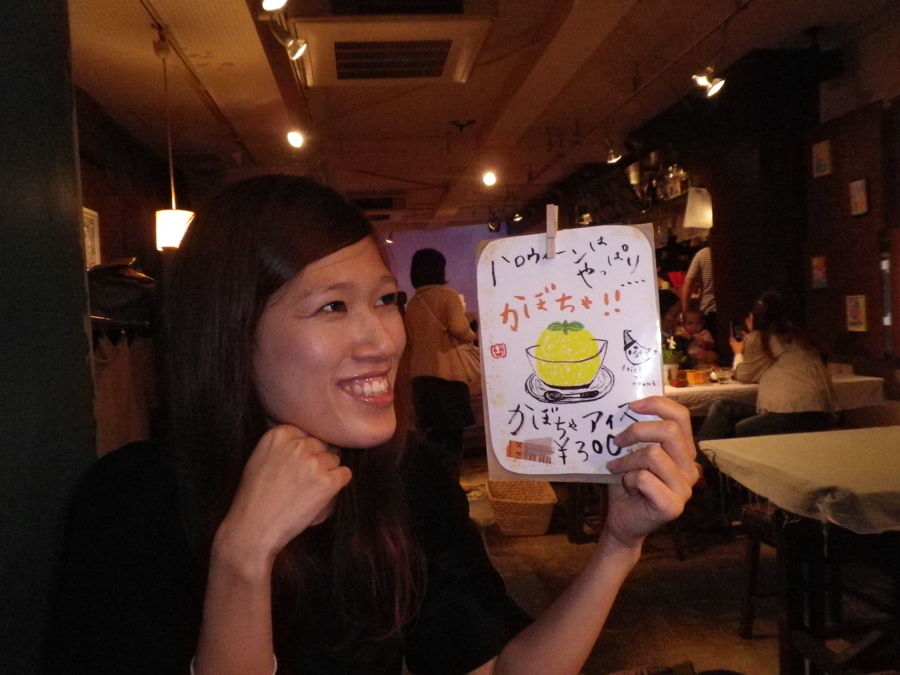 ハロウィーンは
やっぱり....
かぼちゃ!!
かぼちゃアイス
¥300